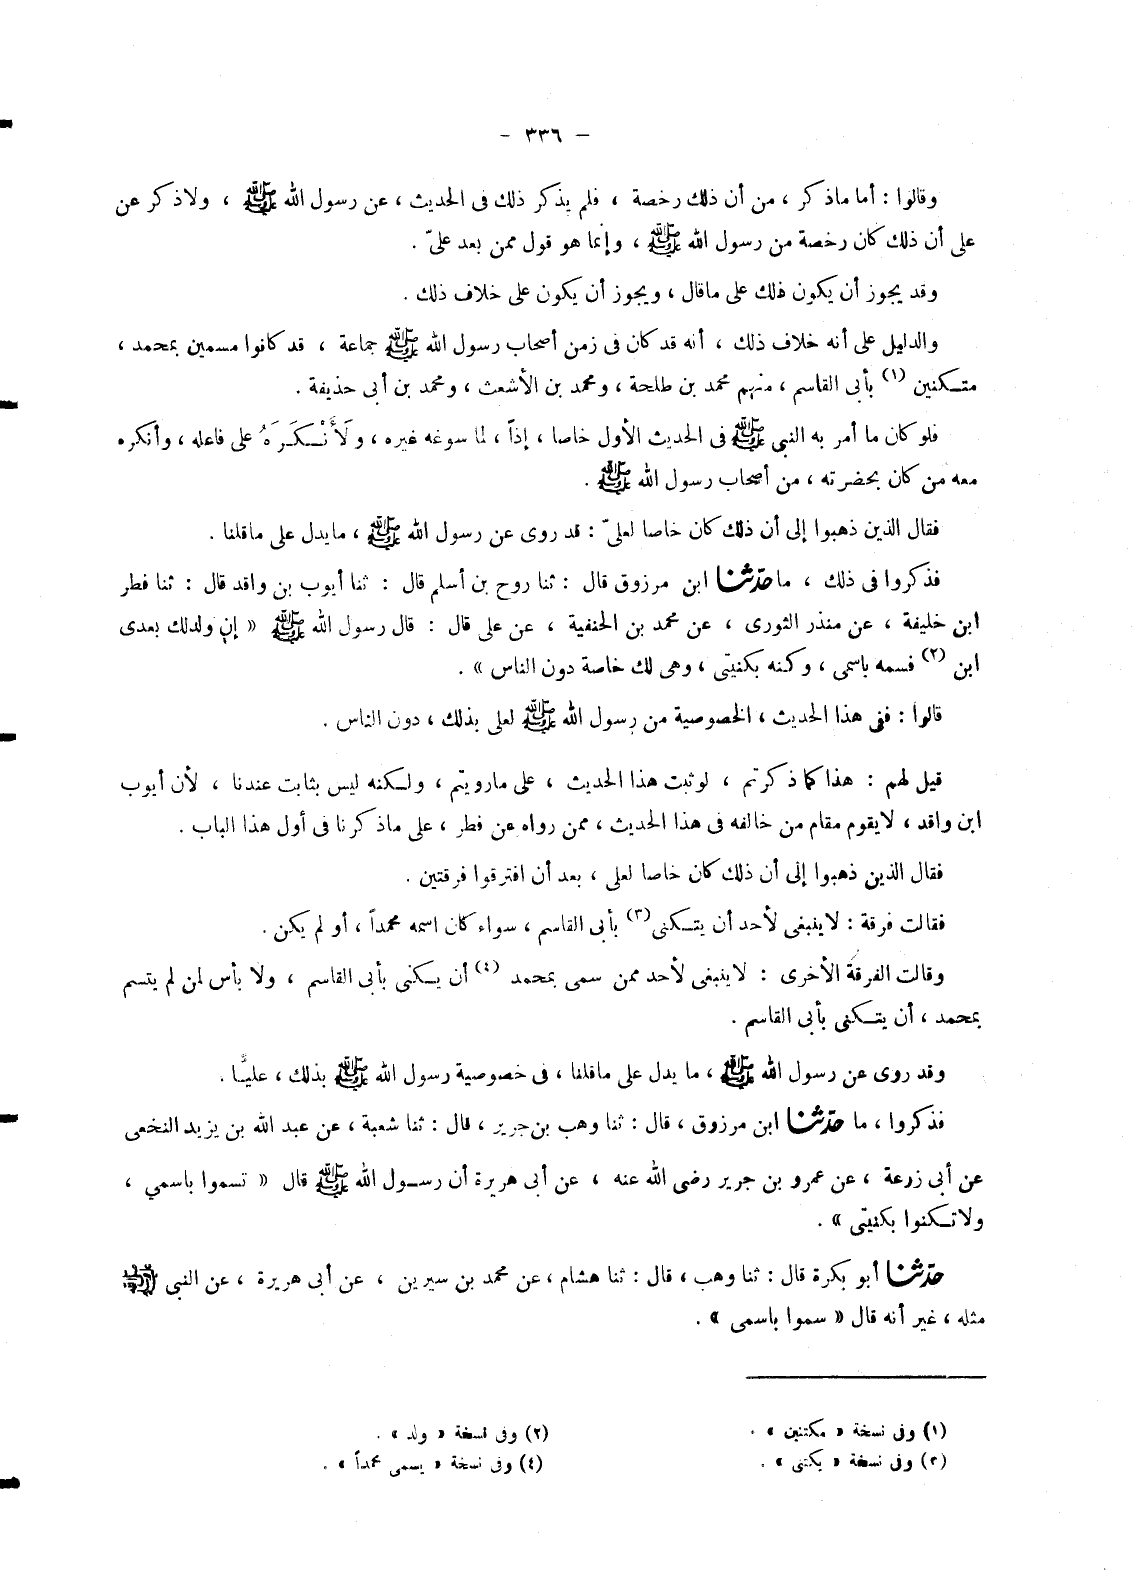 – ٣٣٦ –
وقالوا : أما ماذكر ، من أن ذلك رخصة ، فلم يذكر ذلك فى الحديث ، عن رسول الله ﷺ ، ولاذكر عن
على أن ذلك كان رخصة من رسول الله ﷺ ، وإنما هو قول ممن بعد علىّ .
وقد يجوز أن يكون ذلك على ماقال ، ويجوز أن يكون على خلاف ذلك .
والدليل على أنه خلاف ذلك ، أنه قد كان فى زمن أصحاب رسول الله ﷺ جماعة ، قد كانوا مسمين بمحمد ،
متـكنين (١) بأبى القاسم ، منهم محمد بن طلحة ، ومحمد بن الأشعث ، ومحمد بن أبى حذيفة .
فلو كان ما أمر به النبى ﷺ فى الحديث الأول خاصا ، إذاً ، لما سوغه غيره ، وَلَأَنْـكَـرَهُ على فاعله ، وأنكره
معه من كان بحضرته ، من أصحاب رسول الله ﷺ .
فقال الذين ذهبوا إلى أن ذلك كان خاصا لعلىّ : قد روى عن رسول الله ﷺ ، مايدل على ماقلنا .
فذكروا فى ذلك ، ما حدّثنا ابن مرزوق قال : ثنا روح بن أسلم قال : ثنا أيوب بن واقد قال : ثنا فطر
ابن خليفة ، عن منذر الثورى ، عن محمد بن الحنفية ، عن على قال : قال رسول الله ﷺ « إن ولدلك بعدى
ابن (٢) فسمه باسمى ، وكنه بكنيتى ، وهى لك خاصة دون الناس » .
قالوا : ففى هذا الحديث ، الخصوصية من رسول الله ﷺ لعلى بذلك ، دون الناس .
قيل لهم : هذا كما ذكرتم ، لوثبت هذا الحديث ، على مارويتم ، ولـكنه ليس بثابت عندنا ، لأن أيوب
ابن واقد ، لايقوم مقام من خالفه فى هذا الحديث ، ممن رواه عن فطر ، على ماذكرنا فى أول هذا الباب .
فقال الذين ذهبوا إلى أن ذلك كان خاصا لعلى ، بعد أن افترقوا فرقتين .
فقالت فرقة : لاينبغى لأحد أن يتـكنى (٣) بأبى القاسم ، سواء كان اسمه محمداً ، أو لم يكن .
وقالت الفرقة الأخرى : لاينبغى لأحد ممن سمى بمحمد (٤) أن يـكنى بأبى القاسم ، ولا بأس لمن لم يتسم
بمحمد ، أن يتـكنى بأبى القاسم .
وقد روى عن رسول الله ﷺ ، ما يدل على ماقلنا ، فى خصوصية رسول الله ﷺ بذلك ، عليـًّا .
فذكروا ، ما حدّثنا ابن مرزوق ، قال : ثنا وهب بن جرير ، قال : ثنا شعبة ، عن عبد الله بن يزيد النخعى
عن أبى زرعة ، عن عمرو بن جرير رضى الله عنه ، عن أبى هريرة أن رسـول الله ﷺ قال « تسموا باسمي ،
ولاتـكنوا بكنيتى » .
حدّثنا أبو بكرة قال : ثنا وهب ، قال : ثنا هشام ، عن محمد بن سيرين ، عن أبى هريرة ، عن النبى ﷺ
مثله ، غير أنه قال « سموا باسمى » .
(١) وفى نسخة « مكتنين » .
(٢) وفى نسخة « ولد » .
(٣) وفى نسخة « يكتنى » .
(٤) وفى نسخة « يسمى محمداً » .